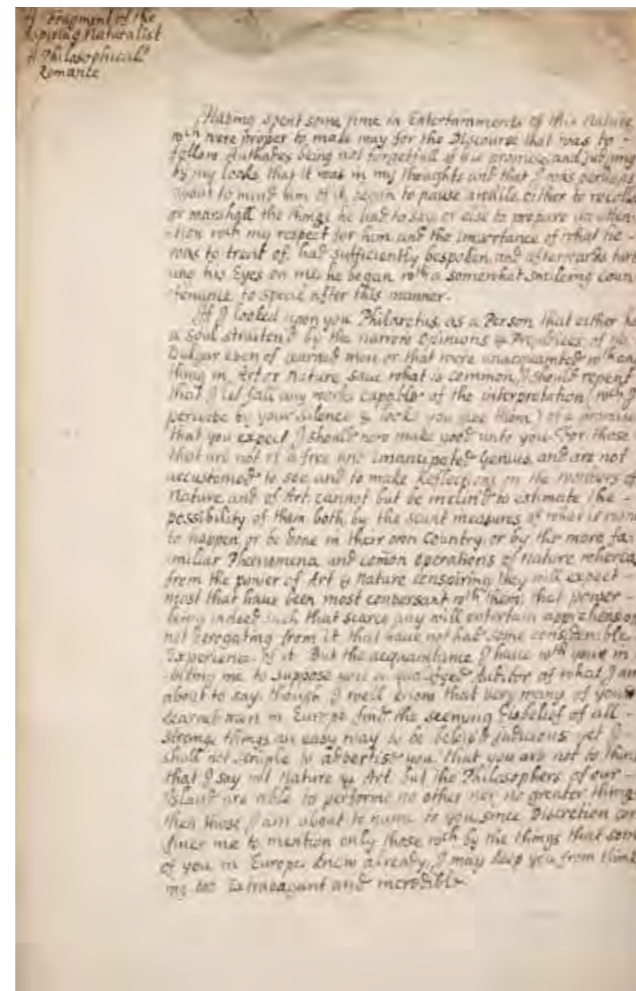 A Fragment of the
Aspiring Naturalist
A Philosophicall
Romance
Having spent some time in Entertainments of this Nature
wch were proper to make way for the Discourse that was to -
follow. Authades being not forgetfull of his promise, and judging
by my looks that it was in my thoughts and that I was perhaps
about to mind him of it, began to pause awhile either to recollect
or marshall the things he had to say or else to prepare an atten-
-tion wch my respect for him and the importance of what he -
was to treat of, had sufficiently bespoken, and afterwards turn
ing his Eyes on me he began wth a somewhat smileing coun
tenance to speak after this manner.
If I looked upon you Philaretus, as a Person that either ha
a soul straitend by the narrow Opinions & Prejudices of the
Vulgar even of learned men or that were unacquainted wth any
thing in Art or Nature save what is common, I should repent
that I let fall any words capable of the interpretation (wch I
perceive by your silence & looks you give them) of a promise
that you expect I should now make good unto you. For those
that are not of a free and imancipated Genius and are not
accustomed to see and to make Reflections on the wonders of
Nature and of Art, cannot but be inclin'd to estimate the -
possibility of them both, by the scant measures of what is wont
to happen, or be done in their own Country, or by the more fa
miliar Phenomena, and comon operations of Nature whereas
from the power of Art & Nature conspiring they will expect -
most that have been most conversant wth them; that power -
being indeed such that scarce any will entertain apprehensions
not derogating from it that have not had some considerable
Experience of it. But the acquaintance I have wth your in
biting me to suppose you a Auditor of what I am
about to say, though I well know that very many of your
Learned men in Europe find the seeming disbelief of all -
strange things an easy way to be beleivd judicious yet I
shall not scruple to advertise you, that you are not to think
that I say not Nature & Art but the Philosophers of our -
Island are able to performe no other nor no greater things
then those I am about to name to you since Discretion con
fines me to mention only those wch by the things that some
of you in Europe knew already, I may keep you from think
ing too Extravagant and incredible